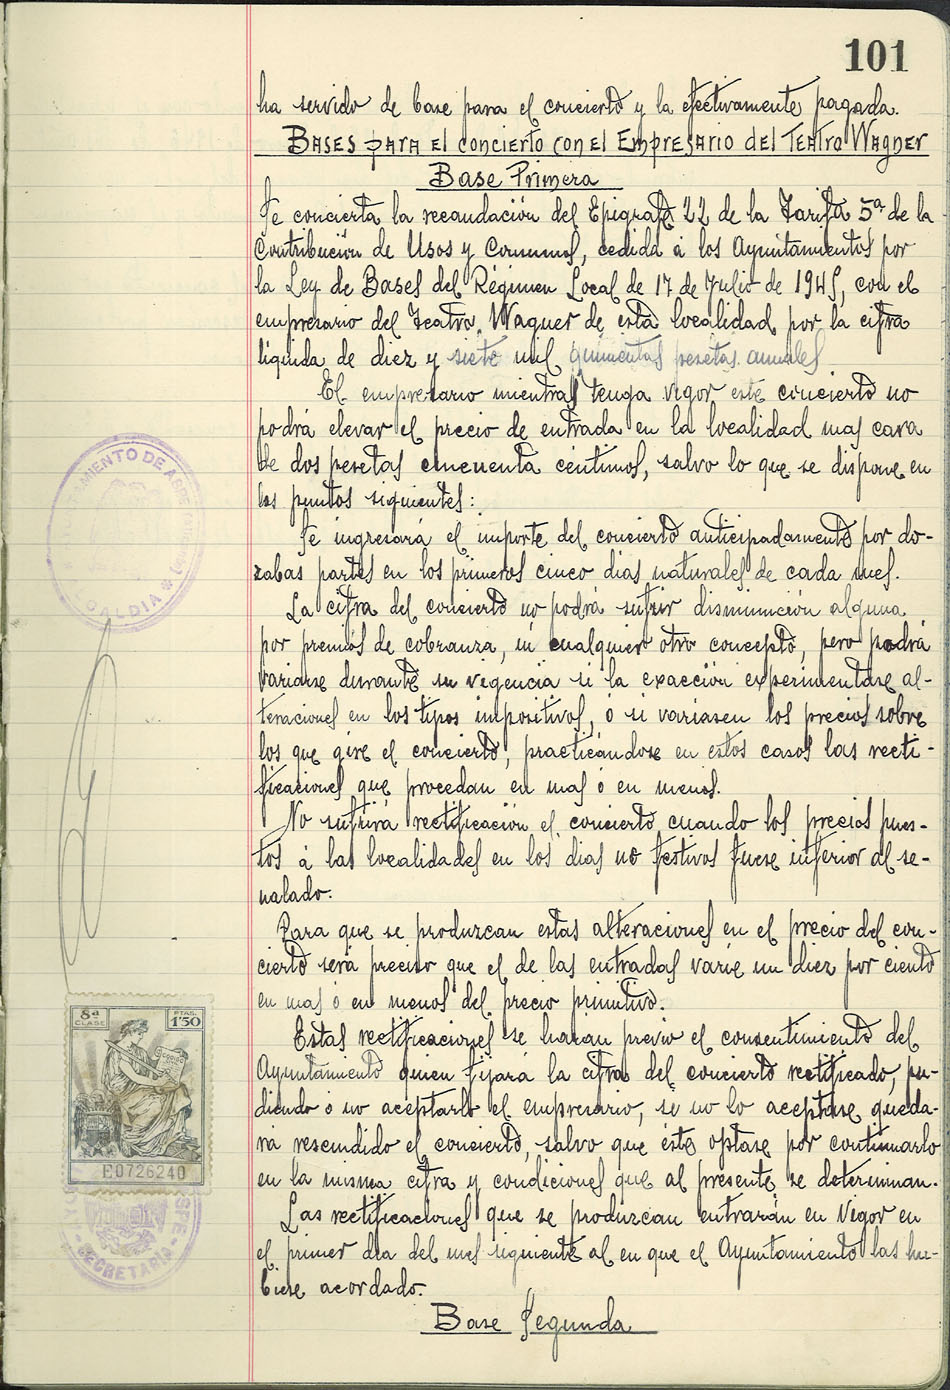 101
ha servido de base para el concierto y la efectivamente pagada.
BASES PARA EL CONCIERTO CON EL EMPRESARIO DEL TEATRO WAGNER
Base Primera
Se concierta la recaudación del Epigrafe 22 de la Tarifa 5ª de la
Contribución de Usos y Consumos, cedida á los Ayuntamientos por
la Ley de Bases del Régimen Local de 17 de Julio de 1945, con el
empresario del Teatro Wagner de esta localidad por la cifra
liquida de diez y siete mil quinientas pesetas anuales
El empresario mientras tenga vigor este concierto no
podrá elevar el precio de entrada en la localidad mas cara
de dos pesetas cincuenta céntimos, salvo lo que se dispone en
los puntos siguientes:
Se ingresará el importe del concierto anticipadamente por do-
zabas partes en los primeros cinco dias naturales de cada mes.
La cifra del concierto no podrá sufrir disminución alguna
por premios de cobranza, ni cualquier otro concepto, pero podrá
variarse durante su vigencia si la exacción experimentase al-
teraciones en los tipos impositivos, ó si variasen los precios sobre
los que gire el concierto, practicándose en estos casos las recti-
ficaciones que procedan en mas ó en menos.
No sufrirá rectificación el concierto cuando los precios pues-
tos á las localidades en los dias no festivos fuese inferior al se-
nalado.
Para que se produzcan estas alteraciones en el precio del con-
cierto será preciso que el de las entradas varie un diez por ciento
en mas ó en menos del precio primitivo.
Estas rectificaciones se haran previo el consentimiento del
Ayuntamiento quien fijará la cifra del concierto rectificado, pu-
diendo ó no aceptarlo el empresario, si no lo aceptase queda-
rá rescindido el concierto, salvo que éste optase por continuarlo
en la misma cifra y condiciones que al presente se determinan.
Las rectificaciones que se produzcan entrarán en vigor en
el primer dia del mes siguiente al en que el Ayuntamiento las hu-
biese acordado.
Base Segunda
ALCALDIA
8ª CLASE
PTAS. 1'50
E0726240
SECRETARIA